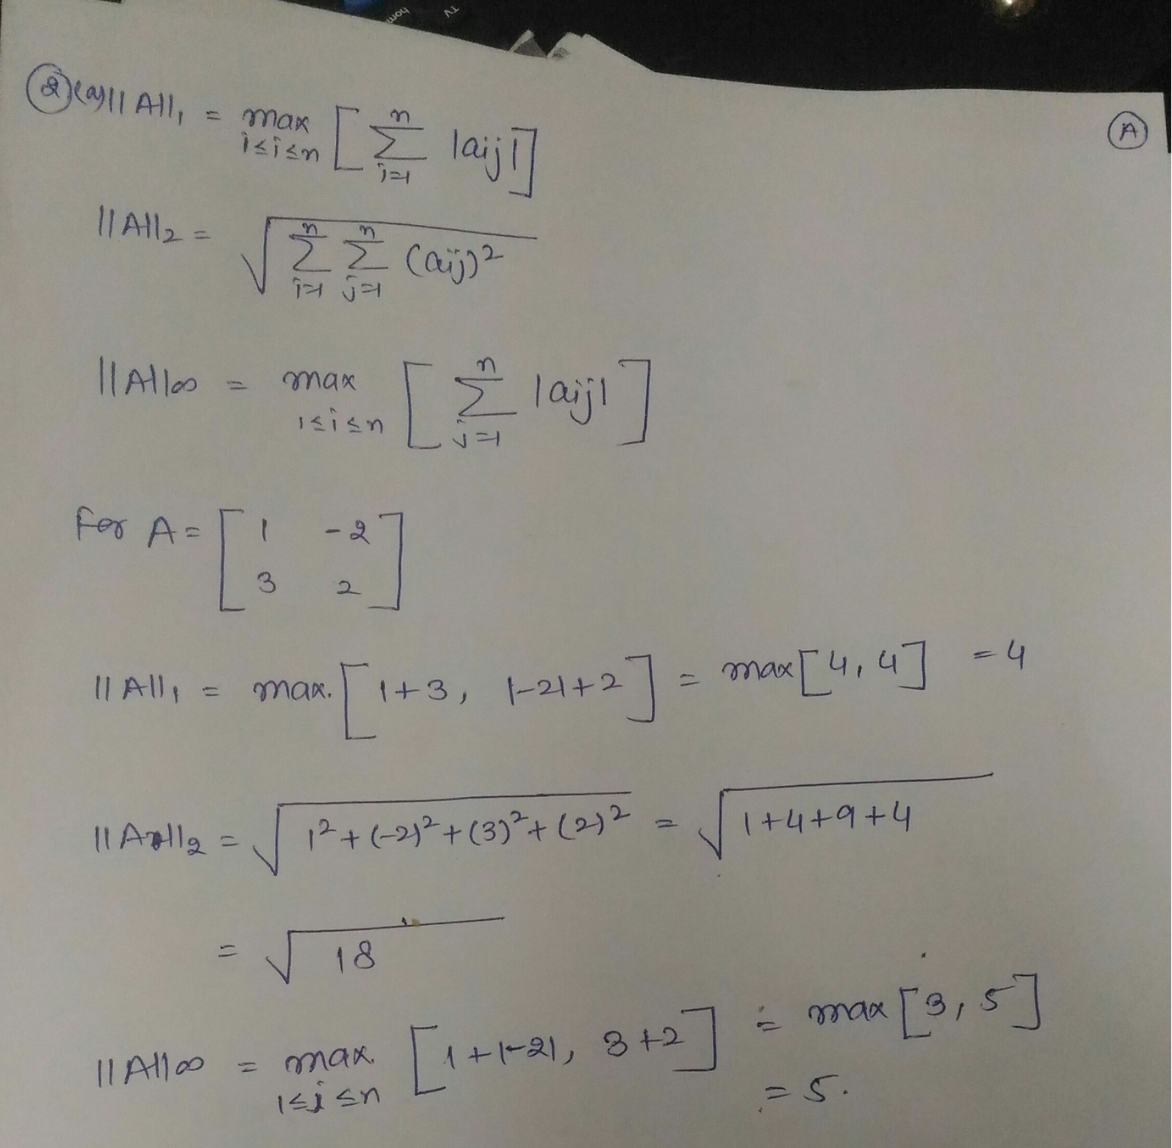 ② (a) ||A||₁ = max 1≤i≤n [ n Σ j=1 |aij| ]
Ⓐ
||A||₂ = √( n Σ i=1 n Σ j=1 (aij)² )
||A||∞ = max 1≤i≤n [ n Σ j=1 |aij| ]
For A = [ 1 -2
3 2 ]
||A||₁ = max. [ 1+3, |-2|+2 ] = max [4, 4] = 4
||A||₂ = √( 1² + (-2)² + (3)² + (2)² ) = √( 1+4+9+4 )
= √18
||A||∞ = max. 1≤j≤n [ 1+|-2|, 3+2 ] = max [3, 5]
= 5.